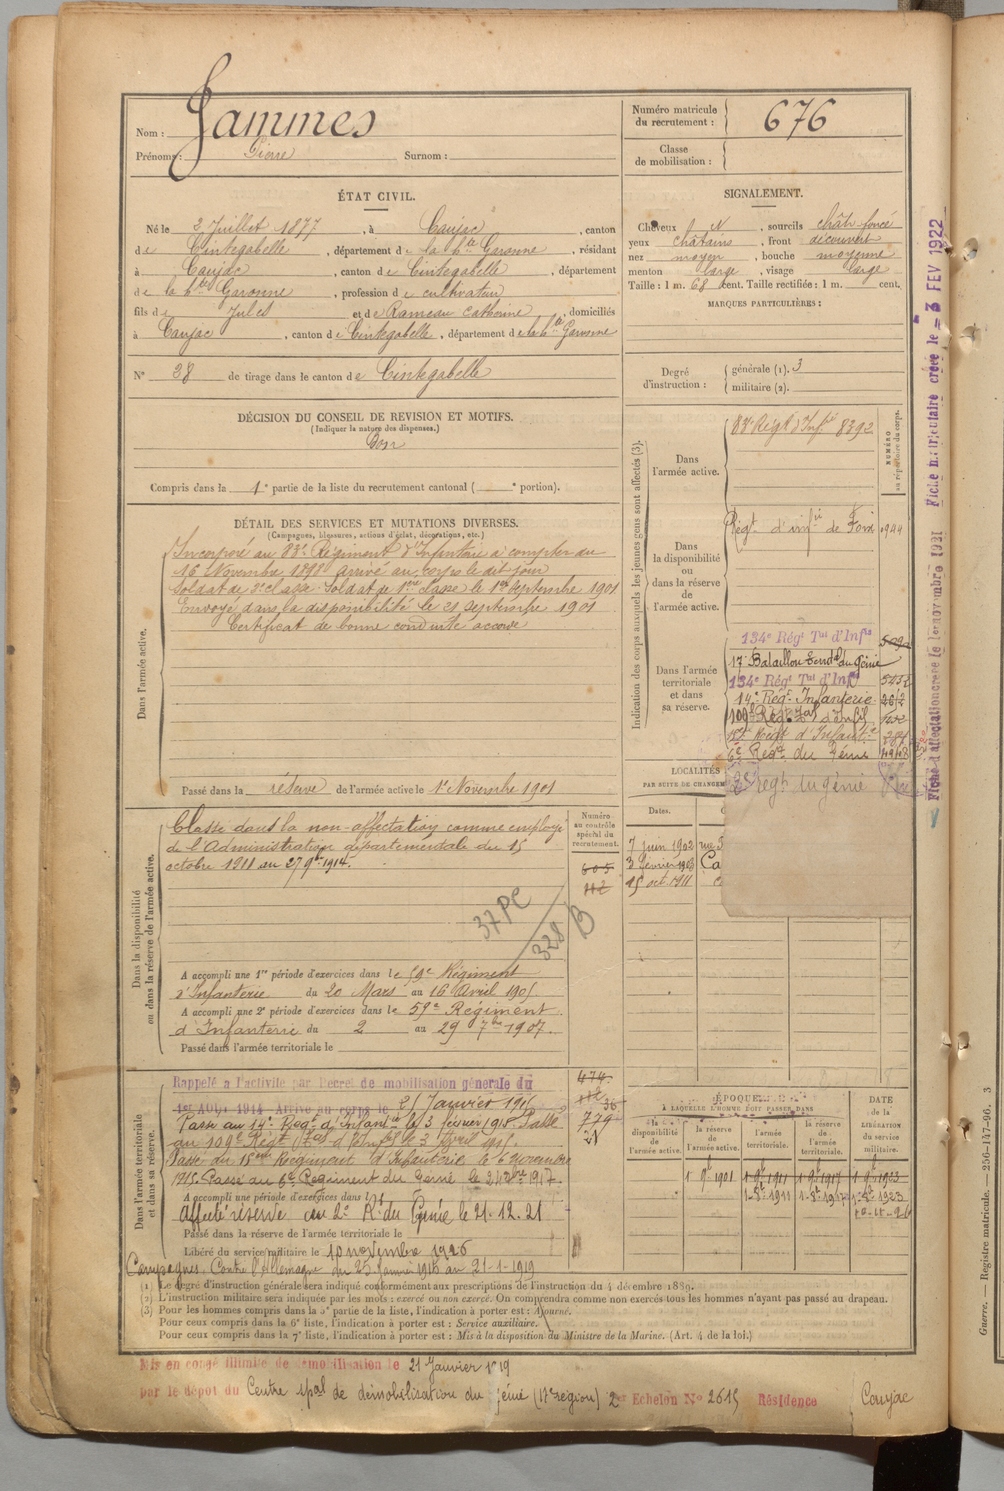 Nom : Jammes
Prénoms : Pierre Surnom :
Numéro matricule du recrutement : 676
Classe de mobilisation :
ÉTAT CIVIL.
Né le 3 Juillet 1877, à Caujac, canton
de Cintegabelle, département de la hte Garonne, résidant
à Caujac, canton de Cintegabelle, département
de la hte Garonne, profession de cultivateur
fils de Jules et de Rameau Catherine, domiciliés
à Caujac, canton de Cintegabelle, département de la hte Garonne
N° 28 de tirage dans le canton de Cintegabelle
DÉCISION DU CONSEIL DE REVISION ET MOTIFS.
(Indiquer la nature des dispenses.)
Bon
Compris dans la 1e partie de la liste du recrutement cantonal ( e portion).
SIGNALEMENT.
Cheveux N, sourcils chât. foncé
yeux châtains, front découvert
nez moyen, bouche moyenne
menton large, visage large
Taille : 1 m. 68 cent. Taille rectifiée : 1 m. cent.
MARQUES PARTICULIÈRES :
Degré d'instruction : générale (1). 3
militaire (2).
DÉTAIL DES SERVICES ET MUTATIONS DIVERSES.
(Campagnes, blessures, actions d'éclat, décorations, etc.)
Dans l'armée active.
Incorporé au 83e Régiment d'Infanterie à compter du
16 Novembre 1898 arrivé au corps le dit jour
Soldat de 2e classe. Soldat de 1ère classe le 1er Septembre 1901
Envoyé dans la disponibilité le 21 septembre 1901
Certificat de bonne conduite accordé
Passé dans la réserve de l'armée active le 1er Novembre 1901
Indication des corps auxquels les jeunes gens sont affectés (3).
NUMÉRO au répertoire du corps.
Dans l'armée active.
83e Régt d'Infie 8392
Dans la disponibilité ou dans la réserve de l'armée active.
Régt d'infie de Foix 1944
Dans l'armée territoriale et dans sa réserve.
134e Régt Tal d'Infie
17e Bataillon du Génie
134e Régt Tal d'Infie
14e Régt Infanterie 2612
109e Régt Tal d'Inf
15e Régt d'Infante
6e Régt du Génie
2e Regt du génie
LOCALITÉS
PAR SUITE DE CHANGEM
Dates.
7 juin 1902
3 février 1903 Ca
15 oct 1911
Dans la disponibilité ou dans la réserve de l'armée active.
Classé dans la non-affectation comme employé
de l'Administration départementale du 15
octobre 1911 au 27 9bre 1914.
Numéro au contrôle spécial du recrutement.
605
112
37 PC
328 B
A accompli une 1re période d'exercices dans le 59e Régiment
d'Infanterie du 20 Mars au 16 Avril 1905.
A accompli une 2e période d'exercices dans le 59e Régiment
d'Infanterie du 2 au 29 7bre 1907.
Passé dans l'armée territoriale le
Dans l'armée territoriale et dans sa réserve.
Rappelé à l'activité par Décret de mobilisation générale du
1er AOUT 1914 Arrivé au corps le 25 Janvier 1915
Passé au 14e Regt d'Infantie le 3 février 1915 Passé
au 109e Régt Tal d'Inf le 3 Avril 1915.
Passé au 15ème Régiment d'Infanterie le 6 novembre
1915. Passé au 6e Régiment du Génie le 24 Xbre 1917.
A accompli une période d'exercices dans l
Affecté réserve au 2e Rt du Génie le 21.12.21
Passé dans la réserve de l'armée territoriale le
Libéré du service militaire le 10 novembre 1926
Campagnes : Contre l'Allemagne du 25 Janvier 1915 au 21-1-1919
474
112
779
ÉPOQUE
À LAQUELLE L'HOMME DOIT PASSER DANS
la disponibilité de l'armée active.
la réserve de l'armée active.
l'armée territoriale.
la réserve de l'armée territoriale.
DATE de la LIBÉRATION du service militaire.
1 9bre 1901 1 9bre 1911 1 9bre 1917 1 9bre 1923
1-8bre 1911 1-8bre 1917 1-8bre 1923
10-11-26
(1) Le degré d'instruction générale sera indiqué conformément aux prescriptions de l'instruction du 4 décembre 1889.
(2) L'instruction militaire sera indiquée par les mots : exercé ou non exercé. On comprendra comme non exercés tous les hommes n'ayant pas passé au drapeau.
(3) Pour les hommes compris dans la 5e partie de la liste, l'indication à porter est : Ajourné.
Pour ceux compris dans la 6e liste, l'indication à porter est : Service auxiliaire.
Pour ceux compris dans la 7e liste, l'indication à porter est : Mis à la disposition du Ministre de la Marine. (Art. 4 de la loi.)
Mis en congé illimité de démobilisation le 21 Janvier 1919
par le dépôt du Centre spal de démobilisation du génie (17e région) 2e Echelon N° 2615 Résidence Caujac
Fiche d'affectation créée le 1er novembre 1921 Fiche matriculaire créée le = 3 FEV 1922
Guerre. — Registre matricule. — 256-147-96. 3